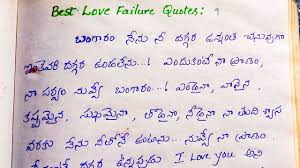 Best Love Failure Quotes:
బంగారం నేను నీ దగ్గర ఉన్నంత చనువుగా
ఇంకెవరి దగ్గర ఉండలేను...! ఎందుకంటే నా ప్రాణం,
నా సర్వం నువ్వే బంగారం...! ఎండైనా, వానైనా,
కష్టమైనా, సుఖమైనా, తోడైనా, నీడైనా నా తుది శ్వాస
వరకు నేను నీలోనే ఉంటాను... నువ్వే నా ప్రాణం
దగ్గర ఉన్నప్పుడు I Love you అని